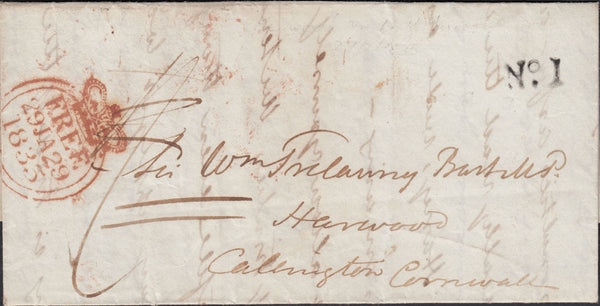 No. 1
FREE
29 JA 29
1835
Sir Wm Trelawny Bart. M.P.
Harwood
Callington Cornwall